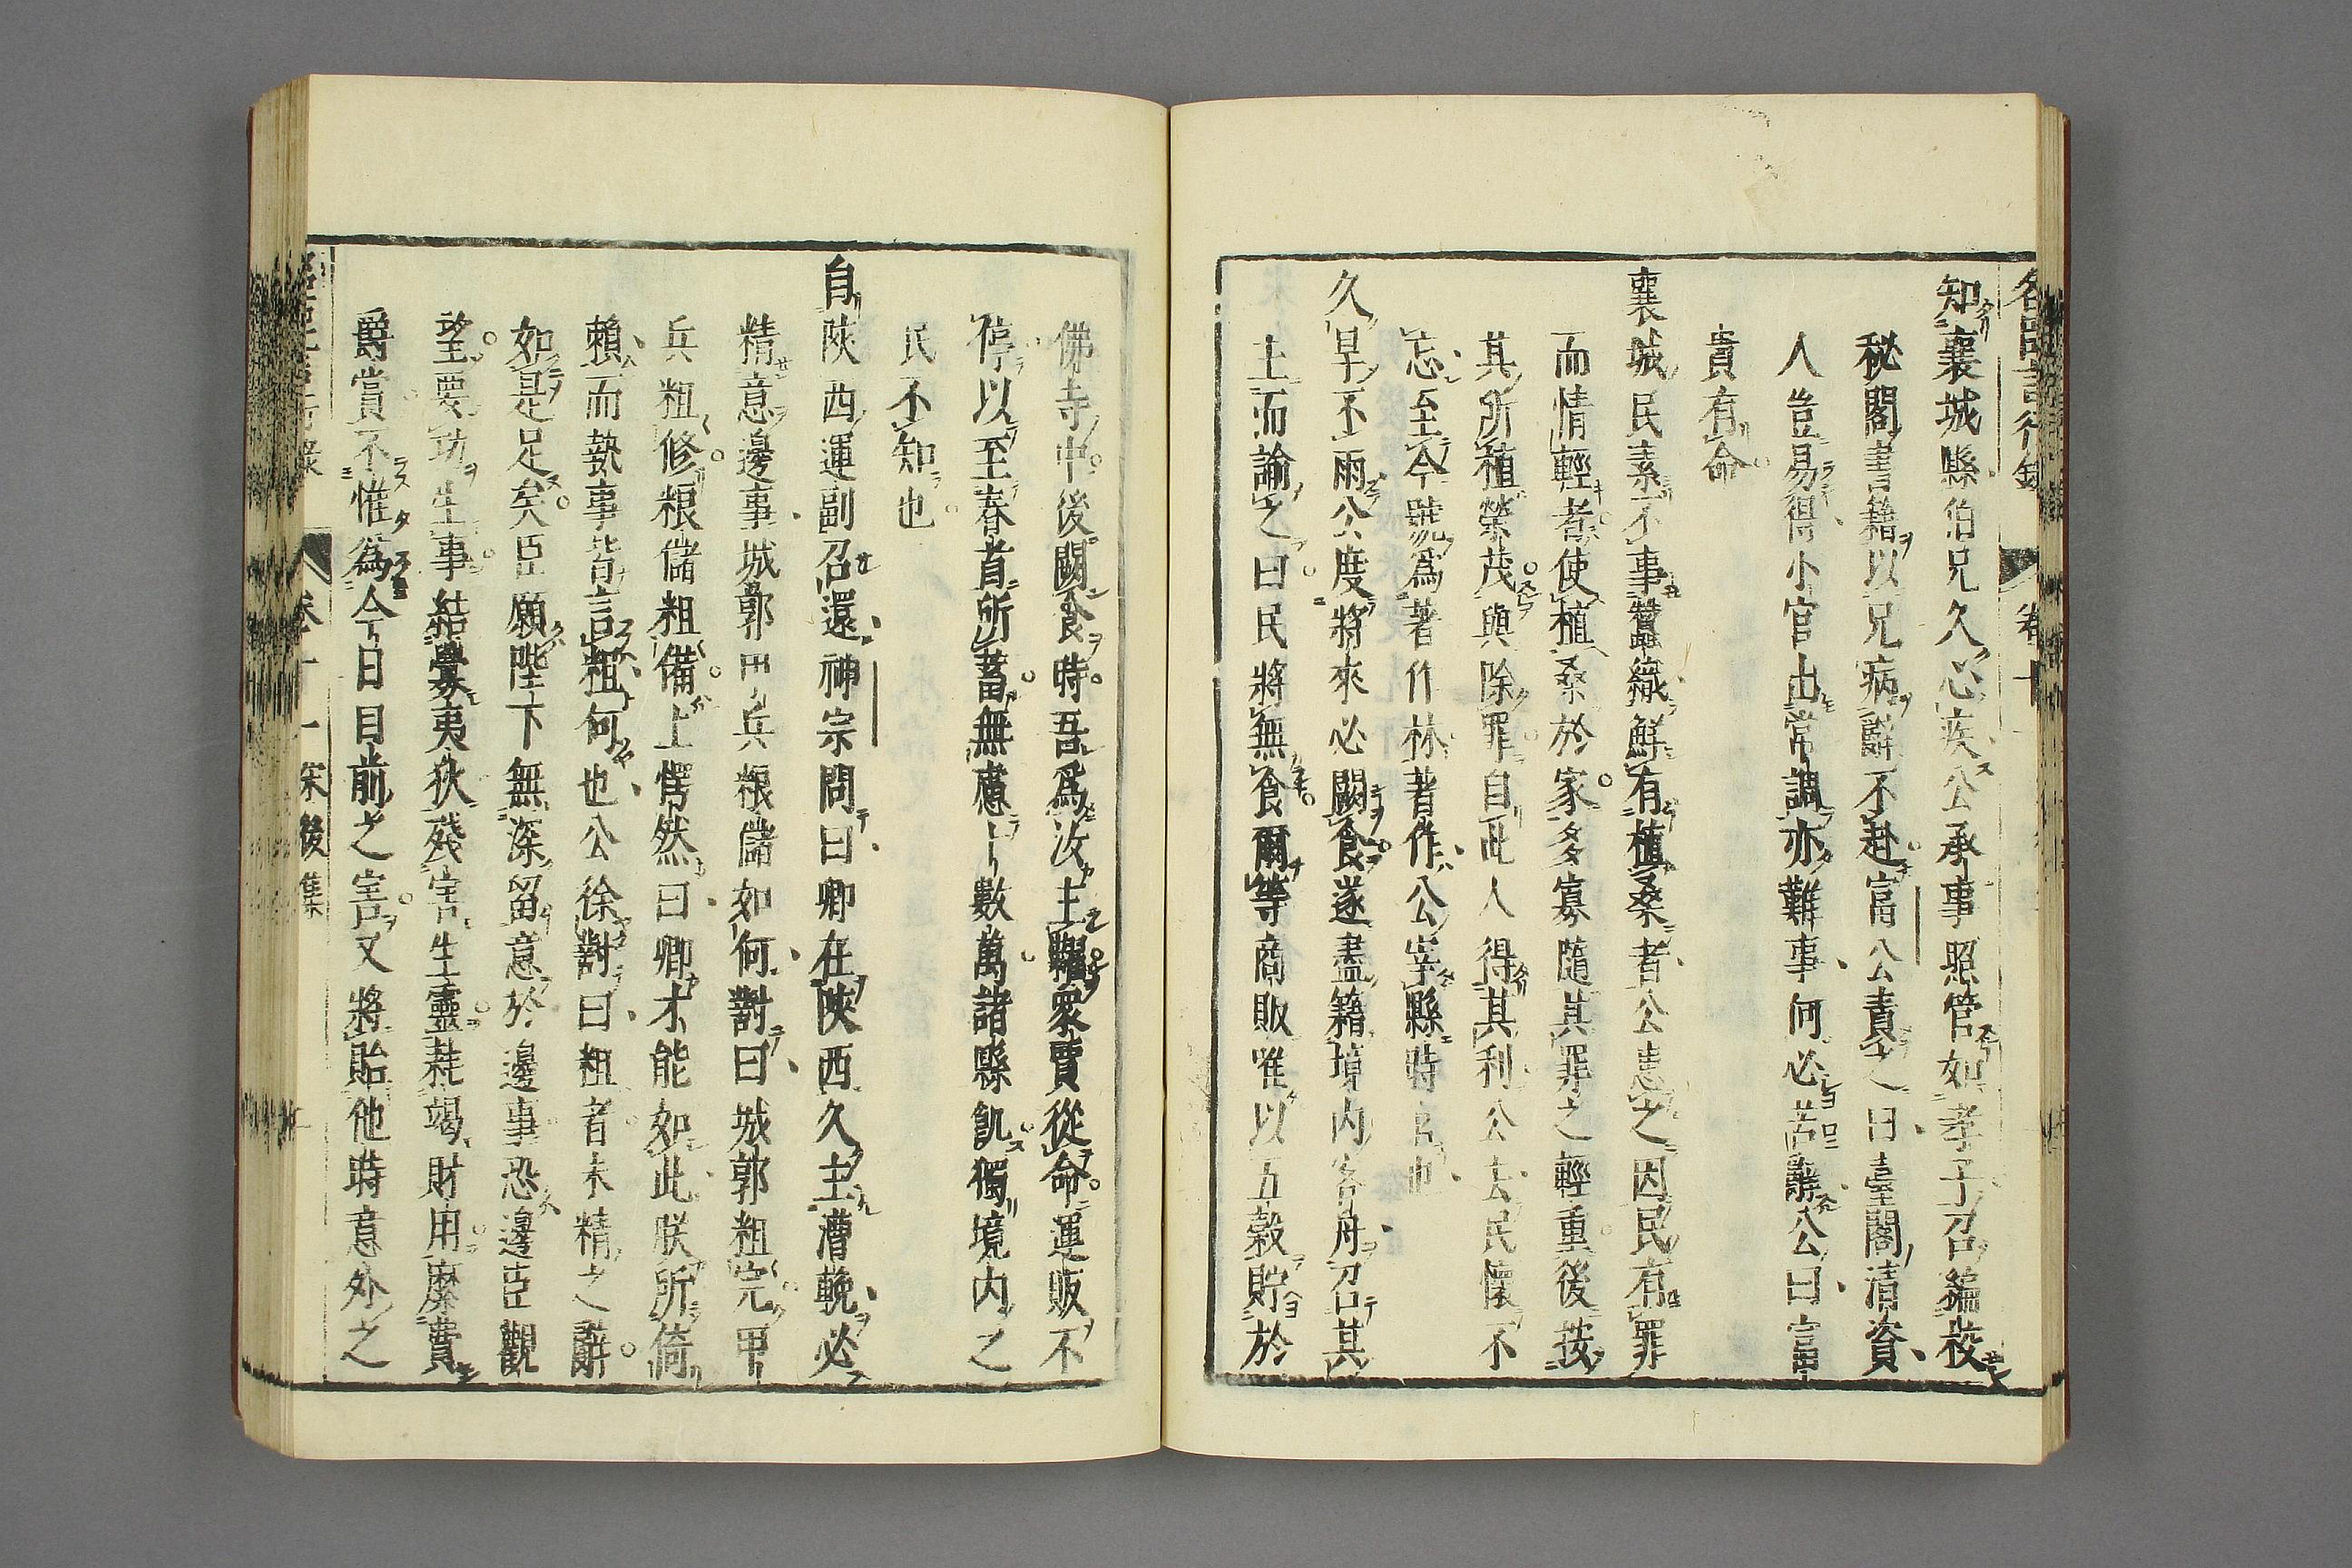 知襄城縣伯兄久心疾公承事照管如孝子召編校
秘閣書籍以兄病辭不赴富公責之曰臺閣清資
人豈易得小官出常調亦難事何必苦辭公曰富
貴有命
襄城民素不事蠶織鮮有植桑者公患之因民有罪
而情輕者使植桑於家多寡隨其罪之輕重後按
其所植榮茂與除罪自此人得其利公去民懷不
忘至今號為著作林著作公宰縣時官也
久旱不雨公度將來必闕食遂盡籍境内客舟召其
主而諭之曰民將無食爾等商販唯以五穀貯於
佛寺中後闕食時吾爲汝主糶衆賈從命運販不
停以至春首所蓄無慮十數萬諸縣飢獨境内之
民不知也
自陜西運副召還神宗問曰卿在陜西久主漕輓必
精意邊事城郭甲兵粮儲如何對曰城郭粗完甲
兵粗修粮儲粗備上愕然曰卿才能如此朕所倚
賴而執事皆言粗何也公徐對曰粗者未精之辭
如是足矣臣願陛下無深留意於邊事恐邊臣觀
望要功生事結釁夷狄殘害生靈耗竭財用糜費
爵賞不惟爲今日目前之害又將貽他時意外之
卷十一 宋後集